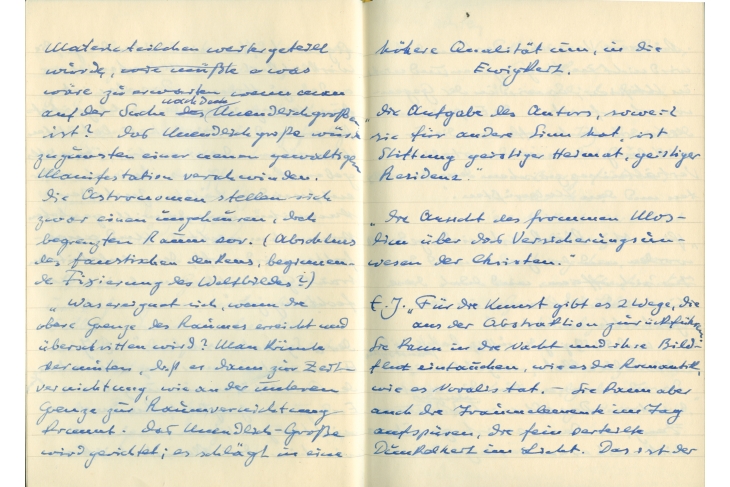 Materieteilchen weitergeteilt
würde, wie müßte a was
wäre zu erwarten, wenn man
auf der Suche nach dem des Unendlichgroßen
ist? Das Unendlichgroße würde
zugunsten einer neuen gewaltigen
Manifestation verschwinden.
Die Astronomen stellen sich
zwar einen ungeheuren, doch
begrenzten Raum vor. (Abschluss
des faustischen Denkens, beginnen-
de Fixierung des Weltbildes?)
„Was ereignet sich, wenn die
obere Grenze des Raumes erreicht und
überschritten wird? Man könnte
vermuten, daß es dann zur Zeit-
vernichtung, wie an der unteren
Grenze zur Raumvernichtung
kommt. Das Unendlich-Große
wird gerichtet; es schlägt in eine
höhere Qualität um, in die
Ewigkeit.
„Die Aufgabe des Autors, soweit
sie für andere Sinn hat, ist
Stiftung geistiger Heimat, geistiger
Residenz."
„Die Ansicht des frommen Mos-
lim über das Versicherungsun-
wesen der Christen."
E. J. „Für die Kunst gibt es 2 Wege, die
aus der Abstraktion zurückführen:
Sie kann in die Nacht und ihre Bild-
flut eintauchen, wie es die Romantik,
wie es Novalis tat. – Sie kann aber
auch die Traumelemente im Tag
aufspüren, die fein verteilte
Dunkelheit im Licht. Das ist der